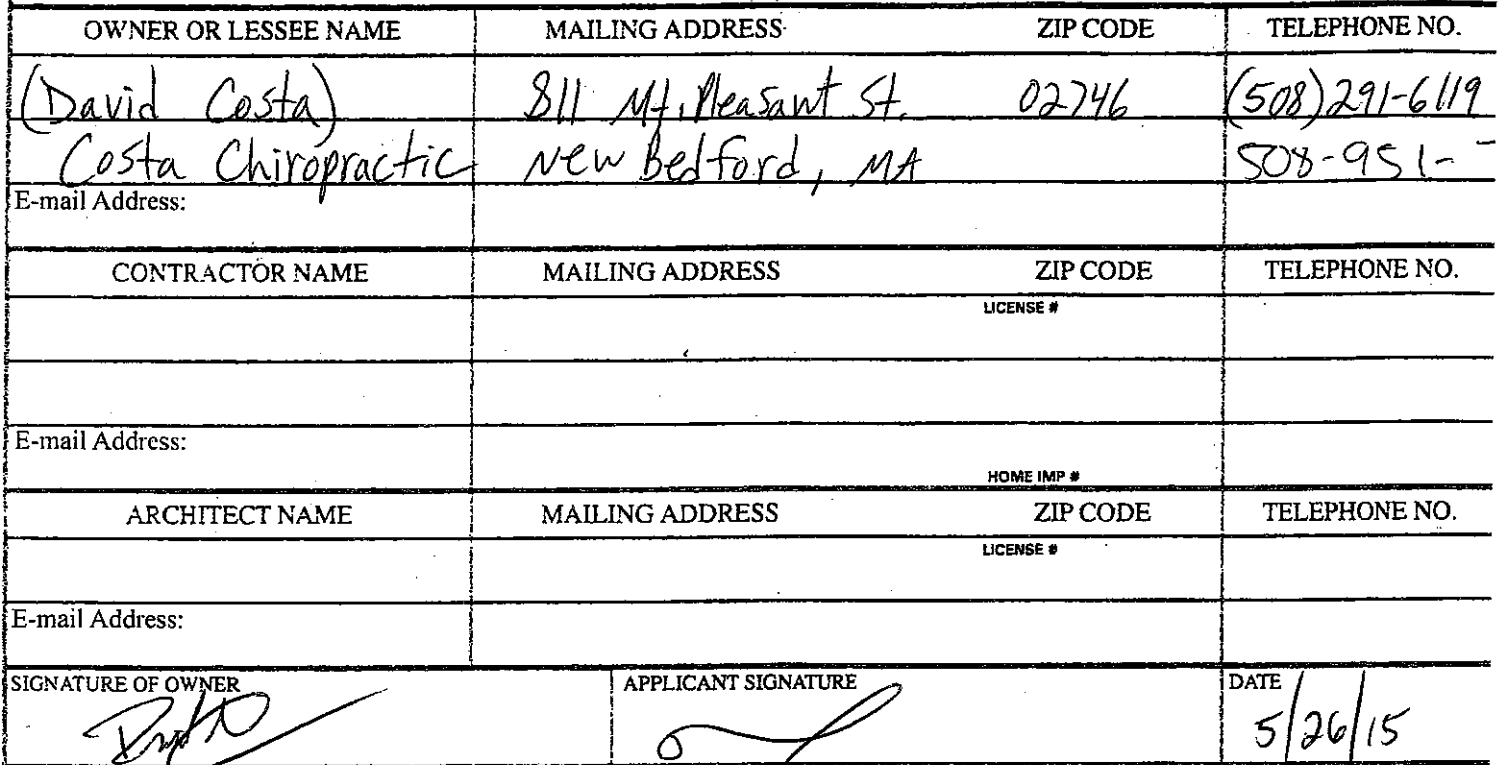 OWNER OR LESSEE NAME MAILING ADDRESS ZIP CODE TELEPHONE NO.
(David Costa) 811 Mt. Pleasant St. 02746 (508)291-6119
Costa Chiropractic New Bedford, MA 508-951-
E-mail Address:
CONTRACTOR NAME MAILING ADDRESS ZIP CODE TELEPHONE NO.
LICENSE #
E-mail Address:
HOME IMP #
ARCHITECT NAME MAILING ADDRESS ZIP CODE TELEPHONE NO.
LICENSE #
E-mail Address:
SIGNATURE OF OWNER APPLICANT SIGNATURE DATE
5/26/15